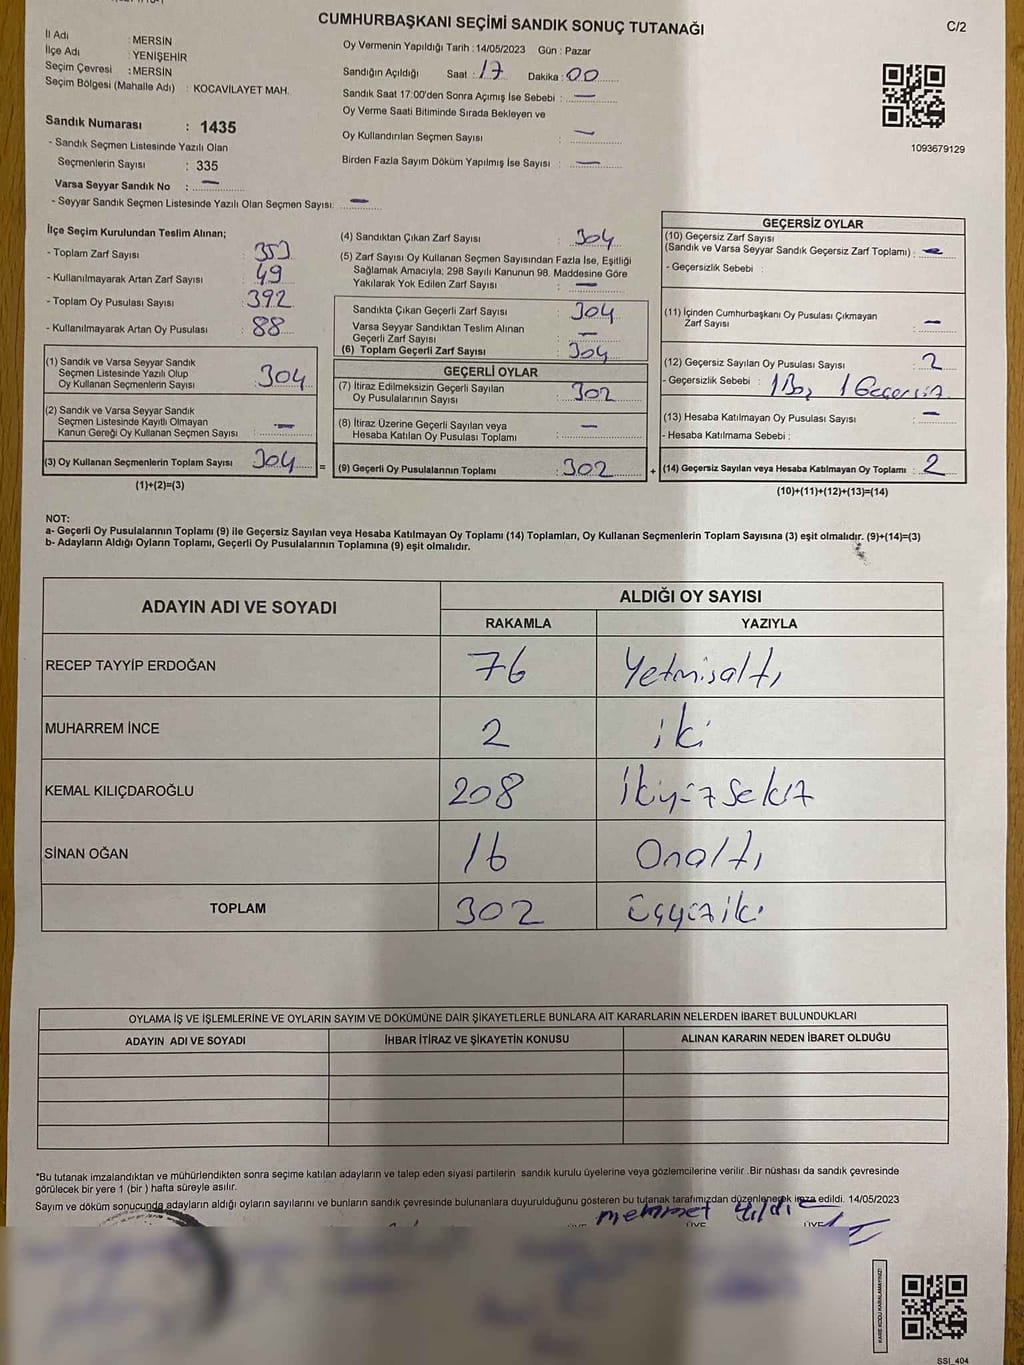 CUMHURBAŞKANI SEÇİMİ SANDIK SONUÇ TUTANAĞI
C/2
İl Adı : MERSİN
İlçe Adı : YENİŞEHİR
Seçim Çevresi : MERSİN
Seçim Bölgesi (Mahalle Adı) : KOCAVİLAYET MAH.
Sandık Numarası : 1435
- Sandık Seçmen Listesinde Yazılı Olan
Seçmenlerin Sayısı : 335
Varsa Seyyar Sandık No : —
- Seyyar Sandık Seçmen Listesinde Yazılı Olan Seçmen Sayısı: —
Oy Vermenin Yapıldığı Tarih : 14/05/2023 Gün : Pazar
Sandığın Açıldığı Saat : 17 Dakika : 00
Sandık Saat 17:00'den Sonra Açımış İse Sebebi : —
Oy Verme Saati Bitiminde Sırada Bekleyen ve
Oy Kullandırılan Seçmen Sayısı : —
Birden Fazla Sayım Döküm Yapılmış İse Sayısı : —
1093679129
İlçe Seçim Kurulundan Teslim Alınan;
- Toplam Zarf Sayısı : 353
- Kullanılmayarak Artan Zarf Sayısı : 49
- Toplam Oy Pusulası Sayısı : 392
- Kullanılmayarak Artan Oy Pusulası : 88
(1) Sandık ve Varsa Seyyar Sandık
Seçmen Listesinde Yazılı Olup
Oy Kullanan Seçmenlerin Sayısı : 304
(2) Sandık ve Varsa Seyyar Sandık
Seçmen Listesinde Kayıtlı Olmayan
Kanun Gereği Oy Kullanan Seçmen Sayısı : —
(3) Oy Kullanan Seçmenlerin Toplam Sayısı : 304 =
(1)+(2)=(3)
(4) Sandıktan Çıkan Zarf Sayısı : 304
(5) Zarf Sayısı Oy Kullanan Seçmen Sayısından Fazla İse, Eşitliği
Sağlamak Amacıyla; 298 Sayılı Kanunun 98. Maddesine Göre
Yakılarak Yok Edilen Zarf Sayısı : —
Sandıkta Çıkan Geçerli Zarf Sayısı : 304
Varsa Seyyar Sandıktan Teslim Alınan
Geçerli Zarf Sayısı : —
(6) Toplam Geçerli Zarf Sayısı : 304
GEÇERLİ OYLAR
(7) İtiraz Edilmeksizin Geçerli Sayılan
Oy Pusulalarının Sayısı : 302
(8) İtiraz Üzerine Geçerli Sayılan veya
Hesaba Katılan Oy Pusulası Toplamı : —
(9) Geçerli Oy Pusulalarının Toplamı : 302 +
GEÇERSİZ OYLAR
(10) Geçersiz Zarf Sayısı
(Sandık ve Varsa Seyyar Sandık Geçersiz Zarf Toplamı) : —
- Geçersizlik Sebebi :
(11) İçinden Cumhurbaşkanı Oy Pusulası Çıkmayan
Zarf Sayısı : —
(12) Geçersiz Sayılan Oy Pusulası Sayısı : 2
- Geçersizlik Sebebi : 1 Boş 1 Geçersiz
(13) Hesaba Katılmayan Oy Pusulası Sayısı : —
- Hesaba Katılmama Sebebi :
(14) Geçersiz Sayılan veya Hesaba Katılmayan Oy Toplamı : 2
(10)+(11)+(12)+(13)=(14)
NOT:
a- Geçerli Oy Pusulalarının Toplamı (9) ile Geçersiz Sayılan veya Hesaba Katılmayan Oy Toplamı (14) Toplamları, Oy Kullanan Seçmenlerin Toplam Sayısına (3) eşit olmalıdır. (9)+(14)=(3)
b- Adayların Aldığı Oyların Toplamı, Geçerli Oy Pusulalarının Toplamına (9) eşit olmalıdır.
ADAYIN ADI VE SOYADI ALDIĞI OY SAYISI
RAKAMLA YAZIYLA
RECEP TAYYİP ERDOĞAN 76 Yetmişaltı
MUHARREM İNCE 2 iki
KEMAL KILIÇDAROĞLU 208 İkiyüzsekiz
SİNAN OĞAN 16 Onaltı
TOPLAM 302 Üçyüziki
OYLAMA İŞ VE İŞLEMLERİNE VE OYLARIN SAYIM VE DÖKÜMÜNE DAİR ŞİKAYETLERLE BUNLARA AİT KARARLARIN NELERDEN İBARET BULUNDUKLARI
ADAYIN ADI VE SOYADI İHBAR İTİRAZ VE ŞİKAYETİN KONUSU ALINAN KARARIN NEDEN İBARET OLDUĞU
*Bu tutanak imzalandıktan ve mühürlendikten sonra seçime katılan adayların ve talep eden siyasi partilerin sandık kurulu üyelerine veya gözlemcilerine verilir .Bir nüshası da sandık çevresinde
görülecek bir yere 1 (bir ) hafta süreyle asılır.
Sayım ve döküm sonucunda adayların aldığı oyların sayılarını ve bunların sandık çevresinde bulunanlara duyurulduğunu gösteren bu tutanak tarafımızdan düzenlenerek imza edildi. 14/05/2023
mehmet Yıldız
ÜYE ÜYE ÜYE
KARE KODU KARALAMAYINIZ!
SSI_404